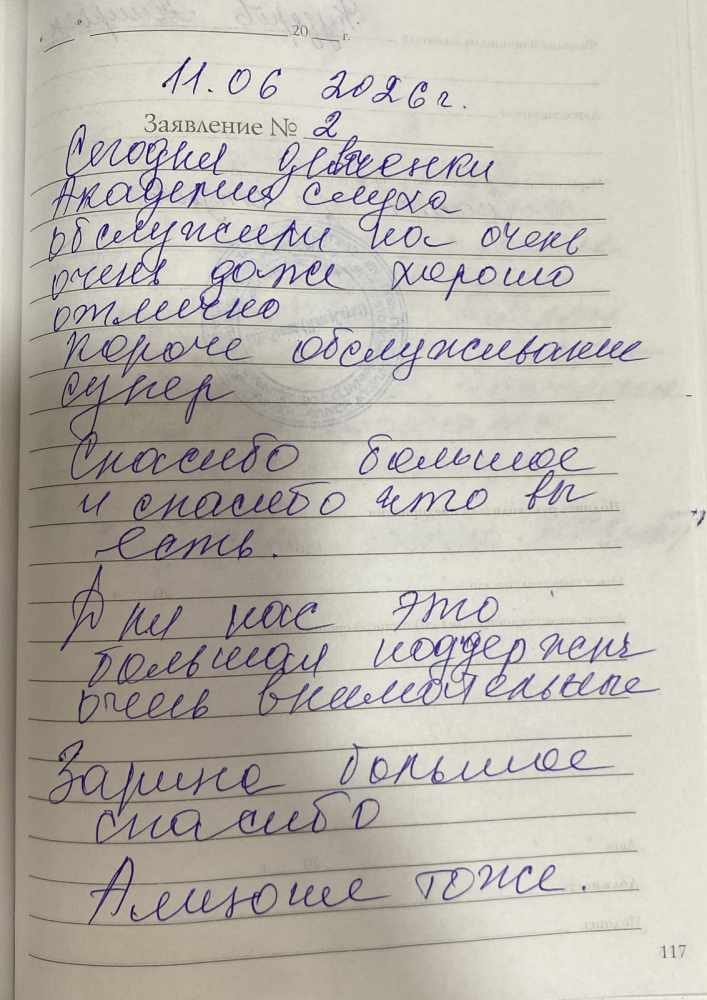 20 г.
11.06 2026г.
Заявление № 2
Сегодня девченки
Академия слуха
обслужили на очень
очень даже хорошо
отлично
короче обслуживание
супер
Спасибо большое
и спасибо что вы
есть.
Для нас это
большая
очень внимательные
Зарине большое
спасибо
тоже.
117